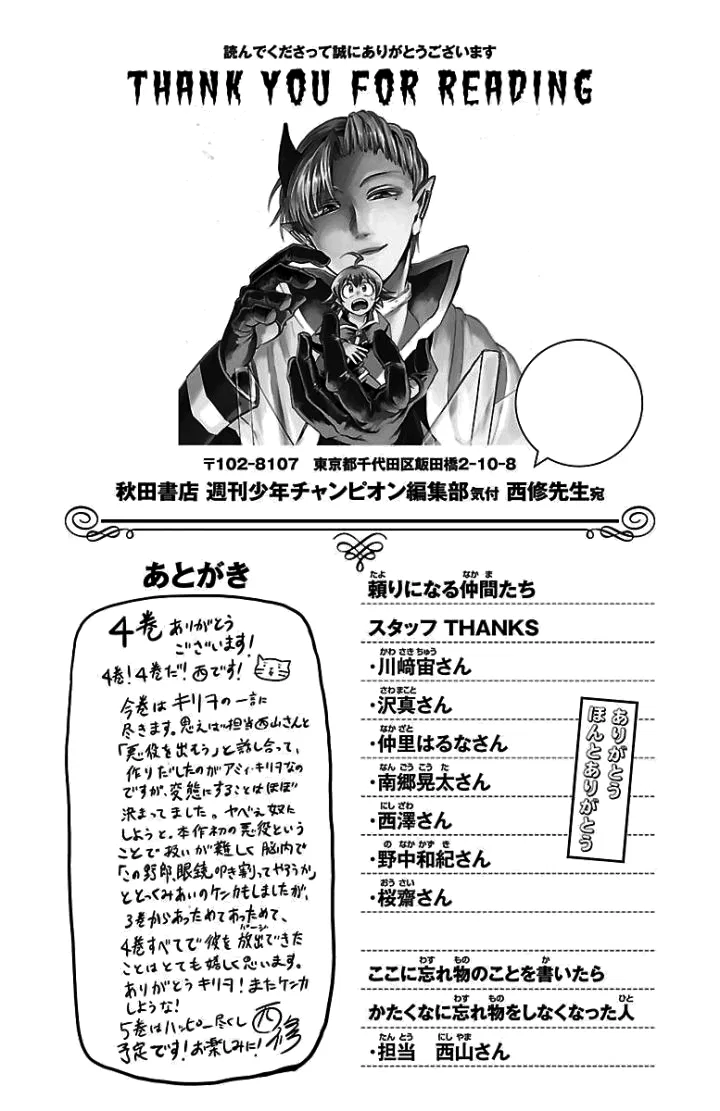 読んでくださって誠にありがとうございます
THANK YOU FOR READING
〒102-8107　東京都千代田区飯田橋2-10-8
秋田書店 週刊少年チャンピオン編集部気付 西修先生宛
あとがき
4巻 ありがとう
ございます!
4巻!4巻だ!西です!
今巻はキリヲの一言に
尽きます。思えば担当西山さんと
「悪役を出もう」と話し合って、
作りだしたのがアミィ・キリヲなの
ですが、変態にすることはほぼ
決まってました。ヤベェ奴に
しようと。本作初の悪役という
ことで扱いが難しく脳内で
「この野郎、眼鏡叩き割ってやろうか」
ととっくみあいのケンカもしましたが、
3巻からあっためてあっためて、
4巻すべてで彼を放出できた
パージ
ことはとても嬉しく思います。
ありがとうキリヲ!またケンカ
しような!
5巻はハッピー尽くし
予定です!お楽しみに! 西修
たよ なかま
頼りになる仲間たち
スタッフ THANKS
かわさきちゅう
・川﨑宙さん
さわまこと
・沢真さん
なかざと
・仲里はるなさん
なんごうこうた
・南郷晃太さん
にしざわ
・西澤さん
のなかかずき
・野中和紀さん
おうさい
・桜齋さん
ありがとう
ほんとありがとう
わす もの か
ここに忘れ物のことを書いたら
わす もの ひと
かたくなに忘れ物をしなくなった人
たんとう にしやま
・担当　西山さん